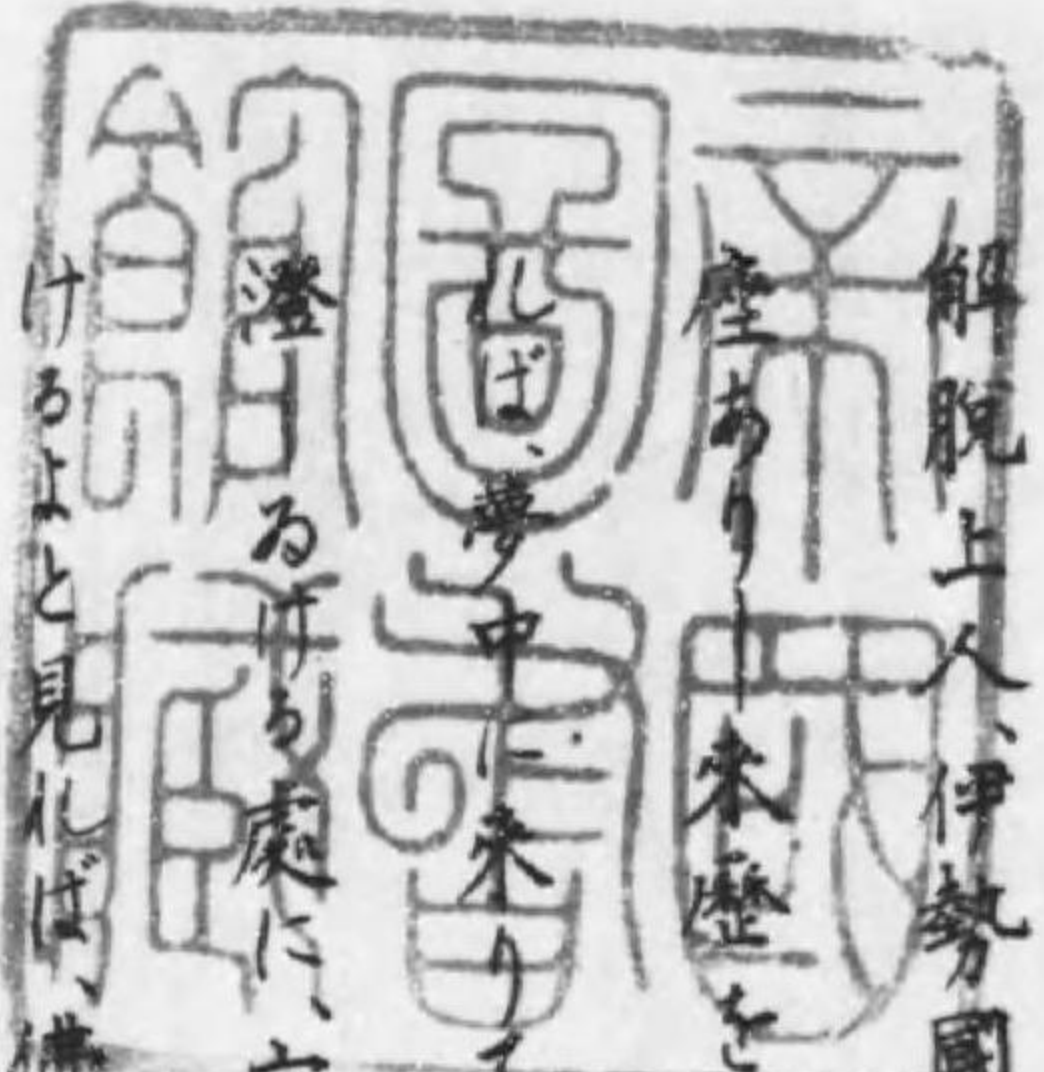 解脫上人、伊勢國
座ありし來歷を
れば、夢中に來りて
澄 ゐける處に、
けるよと見れば、
帝國
圖書
館藏